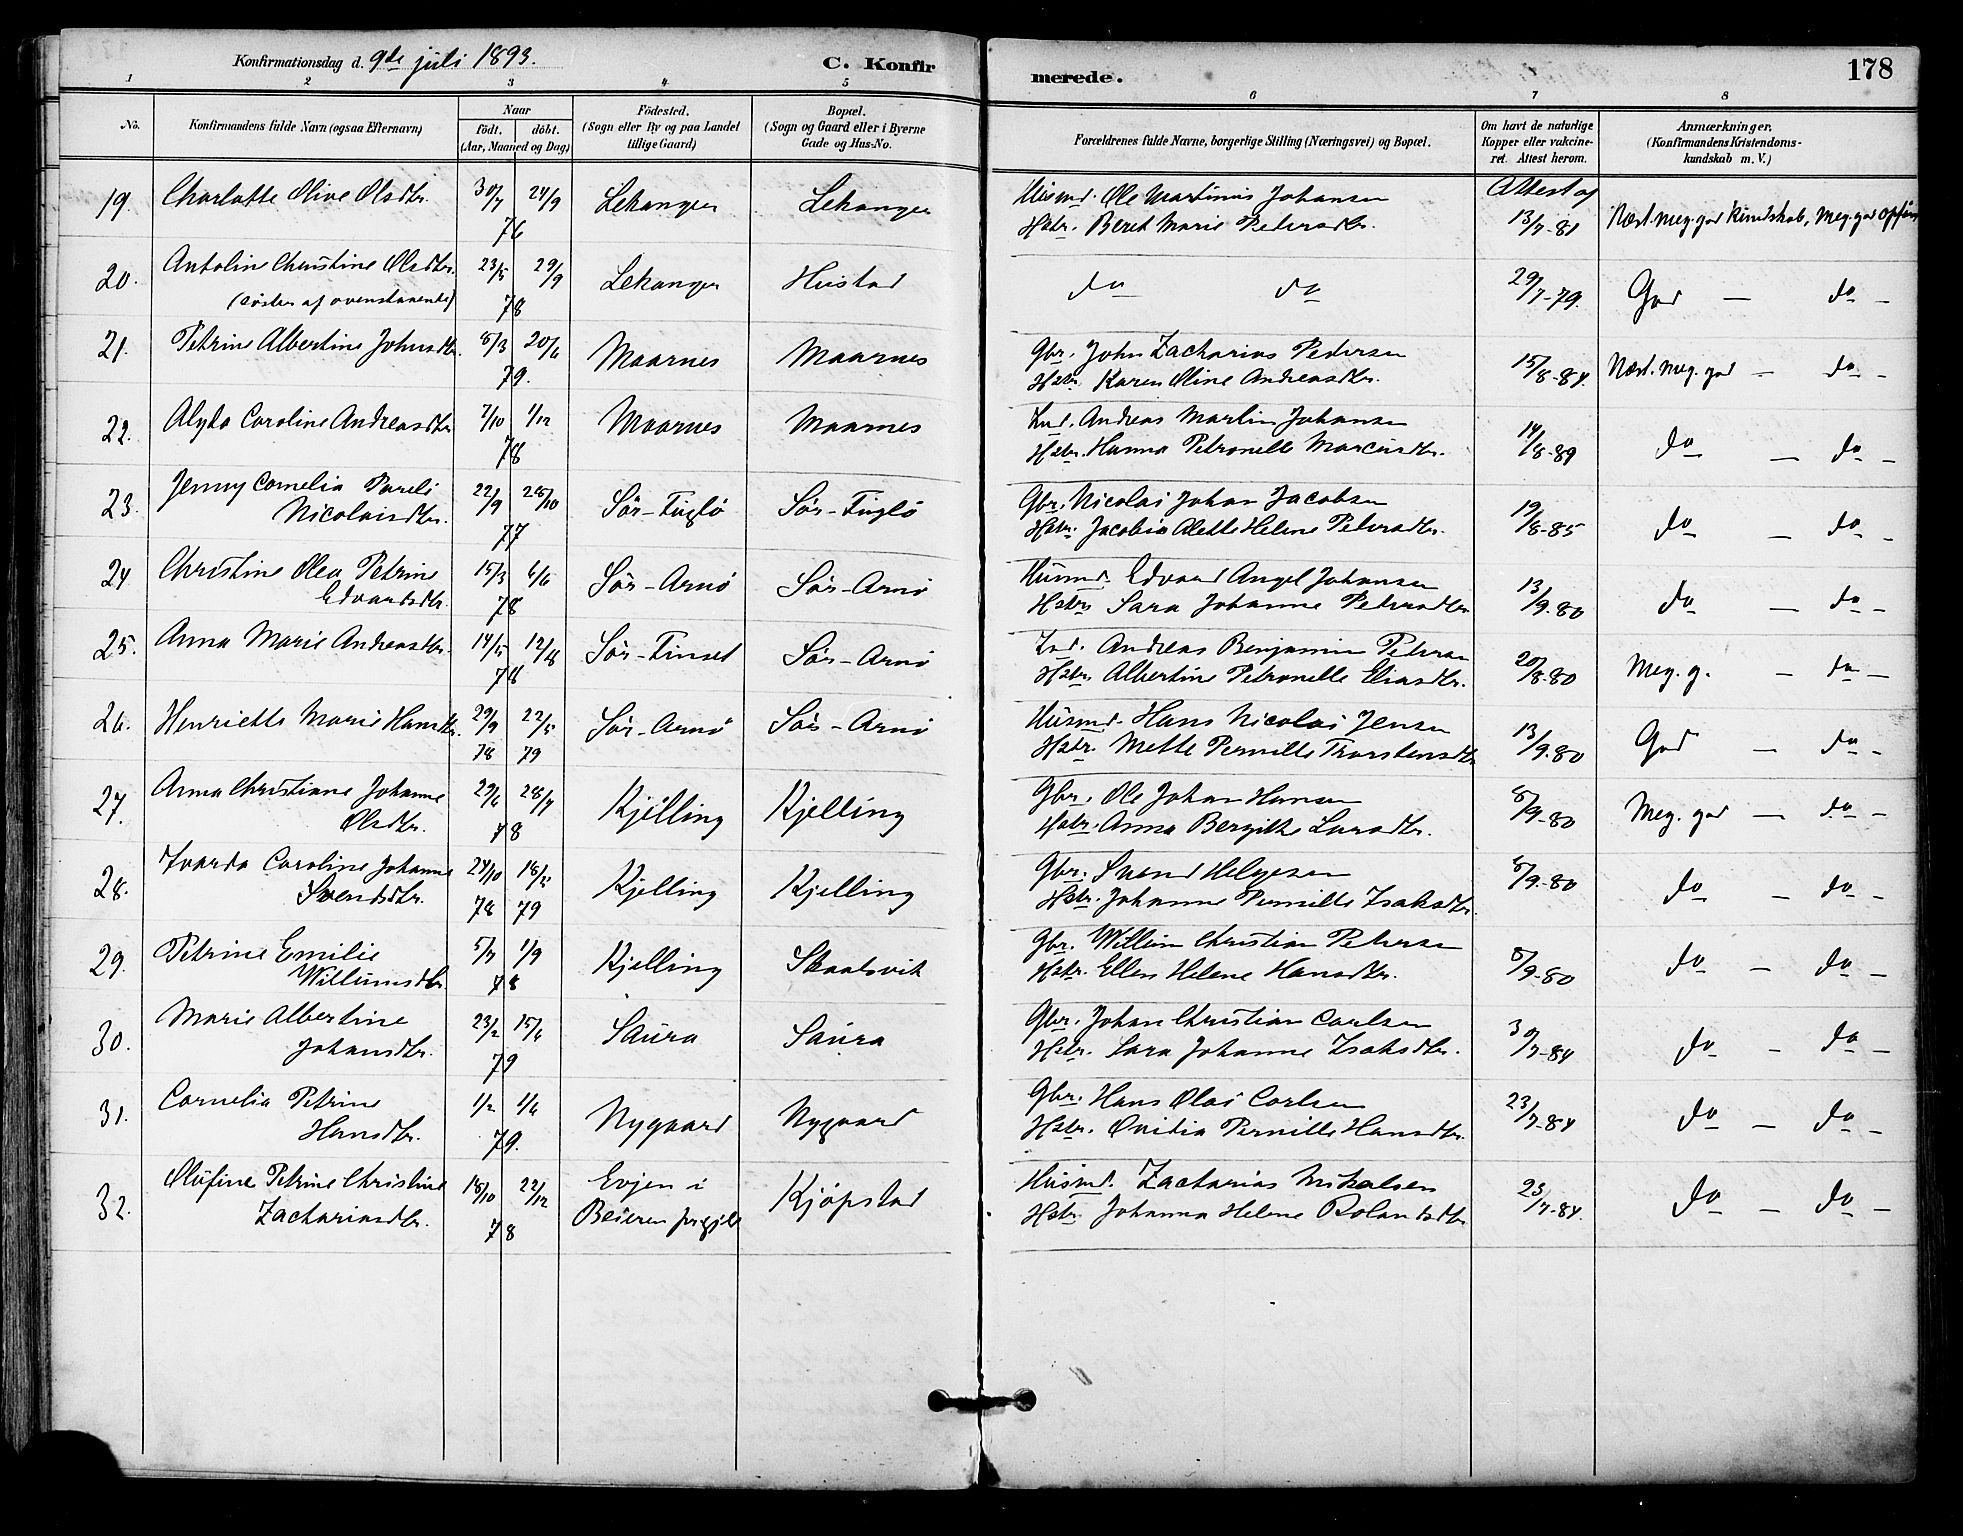 Konfirmationsdag d. 9de juli 1893.
C. Konfirmerede.
178
1 2 3 4 5 6 7 8
No.
Konfirmandens fulde Navn (ogsaa Efternavn)
Naar
födt. döbt.
(Aar, Maaned og Dag)
Födested.
(Sogn eller By og paa Landet
tillige Gaard)
Bopæl.
(Sogn og Gaard eller i Byerne
Gade og Hus-No.
Forældrenes fulde Navne, borgerlige Stilling (Næringsvei) og Bopæl.
Om havt de naturlige
Kopper eller vakcine-
ret. Attest herom.
Anmærkninger.
(Konfirmandens Kristendoms-
kundskab m. V.)
19. Charlotte Olive Olsdtr. 30/7 24/9 Lekanger Lekanger Husmd. Ole Martinus Johansen Attest af
76 Hstr. Beret Marie Pedersdtr. 13/7-81 Næst. meg. god Kundskab, meg. god opförs
20. Antoline Christine Olsdtr. 23/5 29/9 Lekanger Hustad do do 29/7-79. God — do —
(söster af ovenstaaende) 78
21. Petrine Albertine Johnsdtr. 8/3 20/6 Maarnes Maarnes Gbr. John Zacharias Pedersen 15/8-84. Næst. meg. god — do —
79. Hstr. Karen Oline Andreasdtr.
22. Alyda Caroline Andreasdtr 7/10 1/12 Maarnes Maarnes Ind. Andreas Martin Johansen 14/8-89 do — do —
78 Hstr. Hanna Petronelle Marcusdtr.
23. Jenny Cornelia Pareli 22/9 28/10 Sör-Fuglö Sör-Fuglö Gbr. Nicolai Johan Jacobsen 19/8-85 do — do —
Nicolaisdtr. 77 Hstr. Jacobia Alette Helene Pedersdtr.
24 Christine Olea Petrine 15/3 6/6 Sör-Arnö Sör-Arnö Husmd. Edvard Angel Johansen 13/9.80 do — do —
Edvardsdtr. 78 Hstr. Sara Johanne Pedersdtr.
25. Anna Marie Andreasdtr. 14/5 12/8 Sör-Finset Sör-Arnö Ind. Andreas Benjamin Petersen 20/8.80 Meg. g. — do —
78 Hstr. Albertine Petronelle Eliasdtr.
26. Henriette Marie Hansdtr. 29/9 22/5 Sör-Arnö Sör-Arnö Husmd. Hans Nicolai Jensen 13/9.80 God — do —
78 79 Hstr. Mette Pernille Thorstensdtr
27. Anna Christiane Johanne 29/6 28/7 Kjelling Kjelling Gbr. Ole Johan Hansen 8/9-80 Meg. god — do —
Olsdtr. 78 Hstr. Anna Bergitte Larsdtr.
28. Ivarda Caroline Johanne 24/10 18/5 Kjelling Kjelling Gbr. Svend Helgesen 8/9-80 do — do —
Svendsdtr. 78 79 Hstr. Johanne Pernille Isaksdtr.
29. Petrine Emilie 5/7 1/9 Kjelling Skaalsvik Gbr. Willum Christian Petersen 8/9-80 do — do —
Willumsdtr. 78 Hstr. Ellen Helene Hansdtr.
30. Marie Albertine 23/2 15/6 Saura Saura Gbr. Johan Christian Carlsen 30/7-84 do — do —
Johansdtr. 79 Hstr. Sara Johanne Isaksdtr.
31. Cornelia Petrine 1/2 1/6 Nygaard Nygaard Gbr. Hans Olai Carlsen 23/7-84 do — do —
Hansdtr. 79. Hstr. Ovidia Pernille Hansdtr.
32. Olufine Petrine Christine 18/10 22/12 Evjen i Kjöpstad Husmd. Zacharias Mikalsen 23/7-84. do — do —
Zachariasdtr. 78 Beieren prgjld Hstr. Johanna Helene Rolandsdtr